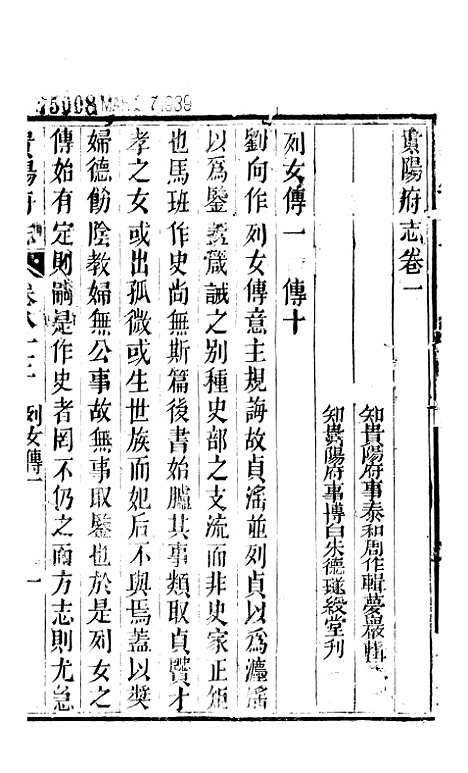 75008 MAR 2 7 1939
貴陽府志卷一
知貴陽府事泰和周作楫夢巖輯
知貴陽府事博白朱德璲綬堂刊
列女傳一 傳十
劉向作列女傳意主規誨故貞滛並列貞以為灋滛
以為鑒葢箴誡之别種史部之支流而非史家正矩
也馬班作史尚無斯篇後書始臚其事類取貞賢才
孝之女或出孤微或生世族而妃后不與焉蓋以奬
婦德飭陰教婦無公事故無事取鑒也於是列女之
傳始有定則嗣是作史者罔不仍之而方志則尤急
貴陽府志 卷八十二 列女傳一 一